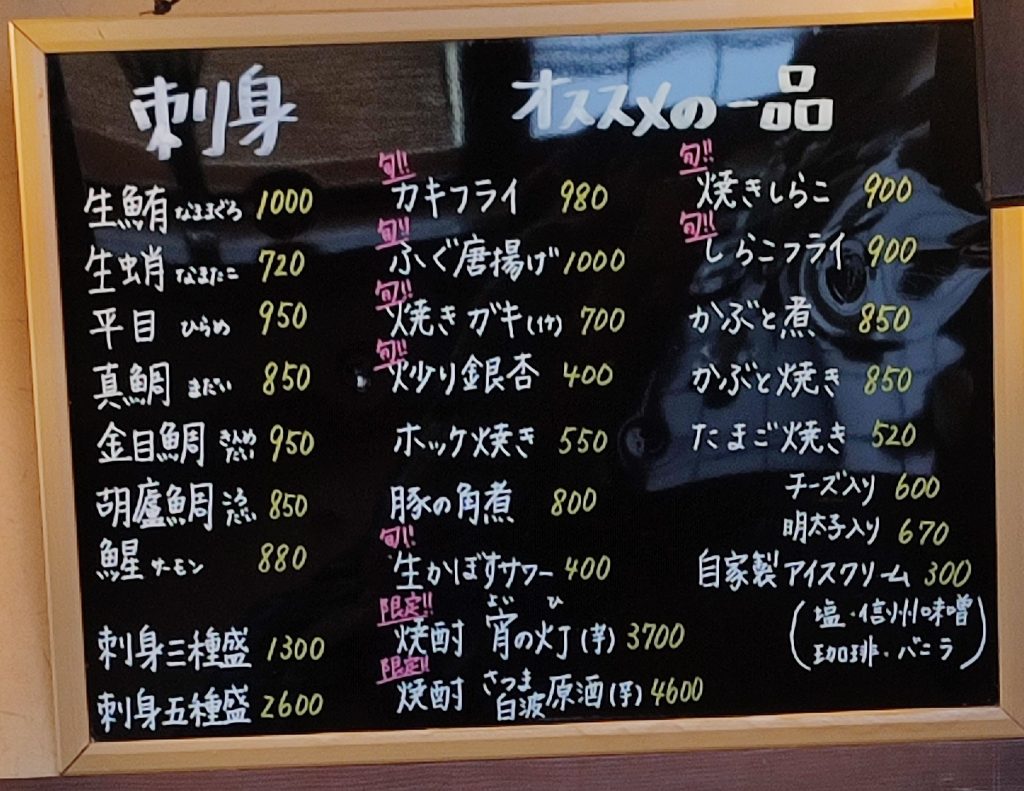 刺身
生鮪 なままぐろ 1000
生蛸 なまたこ 720
平目 ひらめ 950
真鯛 まだい 850
金目鯛 きんめだい 950
胡廬鯛 ころだい 850
鮏 サーモン 880
刺身三種盛 1300
刺身五種盛 2600
オススメの一品
旬!!
カキフライ 980
旬!!
ふぐ唐揚げ 1000
旬!!
焼きガキ(1ケ) 700
旬!!
炒り銀杏 400
ホッケ焼き 550
豚の角煮 800
旬!!
生かぼすサワー 400
限定!!
よい ひ
焼酎 宵の灯(芋) 3700
限定!!
焼酎 さつま白波原酒(芋) 4600
旬!!
焼きしらこ 900
旬!!
しらこフライ 900
かぶと煮 850
かぶと焼き 850
たまご焼き 520
チーズ入り 600
明太子入り 670
自家製アイスクリーム 300
(塩・信州味噌
珈琲・バニラ)